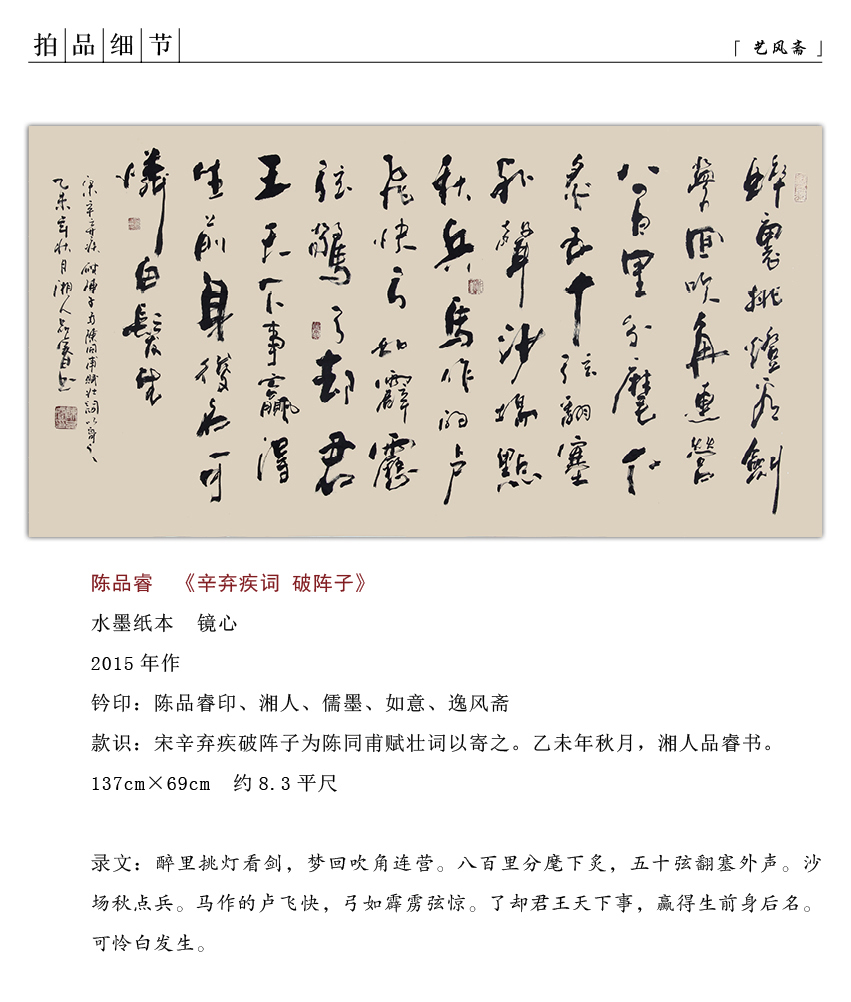 拍品细节
「艺风斋」
醉裏挑燈看劍
夢回吹角連營
八百里分麾下
炙五十弦翻塞
外聲沙場點
秋兵馬作的卢
飛快弓如霹靂
弦驚了却君
王天下事贏得
生前身後名可
憐白髮生
宋辛弃疾破陣子为陳同甫賦壮詞以寄之
乙未年秋月湘人品睿书
陈品睿 《辛弃疾词 破阵子》
水墨纸本 镜心
2015年作
钤印：陈品睿印、湘人、儒墨、如意、逸风斋
款识：宋辛弃疾破阵子为陈同甫赋壮词以寄之。乙未年秋月，湘人品睿书。
137cm×69cm 约8.3平尺
录文：醉里挑灯看剑，梦回吹角连营。八百里分麾下炙，五十弦翻塞外声。沙
场秋点兵。马作的卢飞快，弓如霹雳弦惊。了却君王天下事，赢得生前身后名。
可怜白发生。